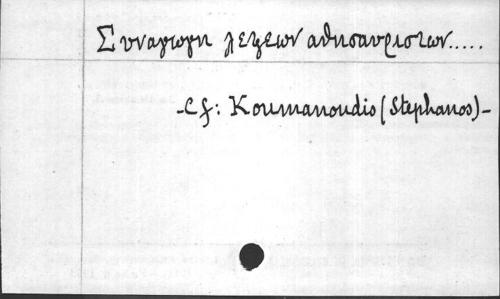 Συναγωγη λεξεων αθησαυριστων.....
-Cf: Koumanoudis (Stephanos)-